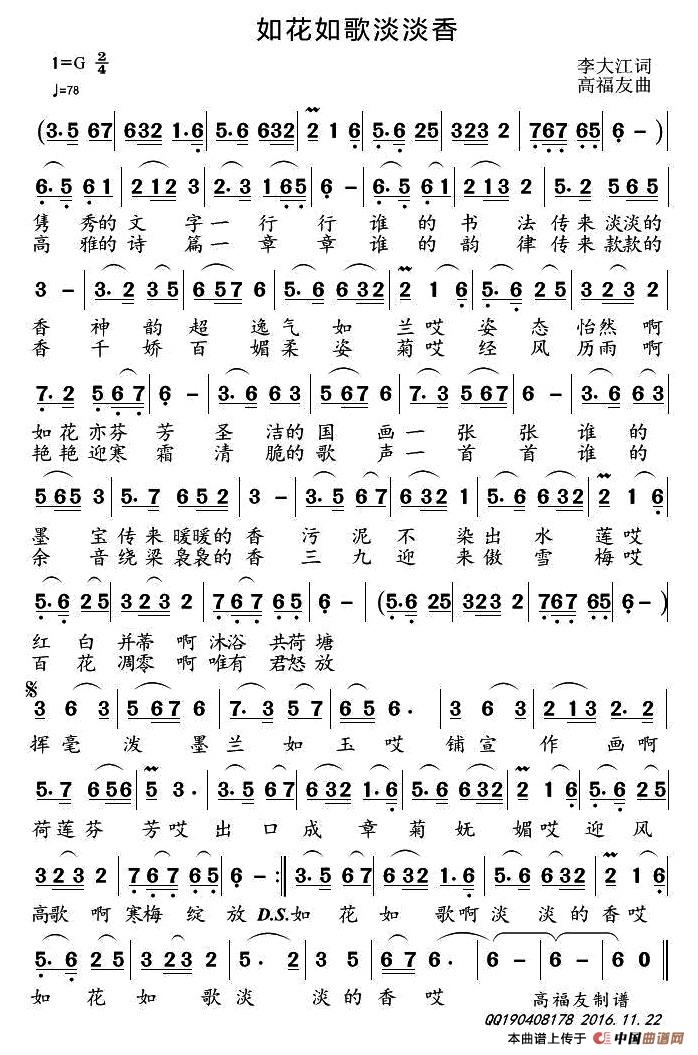 如花如歌淡淡香
1=G 2/4
李大江词
♩=78
高福友曲
(3.5 67 | 632 1.6 | 5.6 632 | 2 1 6 | 5.6 25 | 323 2 | 767 65 | 6 - )|
6.5 61 | 212 3 | 2.3 165 | 6 - | 6.5 61 | 2123 | 5. 2 | 565 5 |
隽秀的文字一行行谁的书法传来淡淡的
高雅的诗篇一章章谁的韵律传来款款的
3 - | 3. 2 35 | 6576 | 5.6 632 | 2 1 6 | 5.6 25 | 323 2 |
香神韵超逸气如兰哎姿态怡然啊
香千娇百媚柔姿菊哎经风历雨啊
7. 2 | 567 | 6 - | 3.6 63 | 567 6 | 7. 3 | 576 | 6 - | 3.6 63 |
如花亦芬芳圣洁的国画一张张谁的
艳艳迎寒霜清脆的歌声一首首谁的
565 3 | 5. 7 652 | 3 - | 3.5 67 | 632 1 | 5.6 632 | 2 1 6 |
墨宝传来暖暖的香污泥不染出水莲哎
余音绕梁袅袅的香三九迎来傲雪梅哎
5.6 25 | 323 2 | 767 65 | 6 - | (5.6 25 | 323 2 | 767 65 | 6 - )|
红白并蒂啊沐浴共荷塘
百花凋零啊唯有君怒放
3 6 3 | 567 6 | 7. 3 57 | 65 6. | 3 6 3 | 213 | 2. 2 |
挥毫泼墨兰如玉哎铺宣作画啊
5. 7 656 | 5 3. | 3.5 67 | 632 1.6 | 5.6 632 | 2 1 6 | 5.6 25 |
荷莲芬芳哎出口成章菊妩媚哎迎风
323 2 | 767 65 | 6 - :‖ 3.5 67 | 632 1.6 | 5.6 632 | 2 1 6 |
高歌啊寒梅绽放 D.S.如花如歌啊淡淡的香哎
5.6 25 | 323 2 | 5. 2 | 3 5 | 676 5 | 6 - | 6 - | 6 0 ‖
如花如歌淡淡的香哎
高福友制谱
QQ190408178 2016.11.22
本曲谱上传于 中国曲谱网